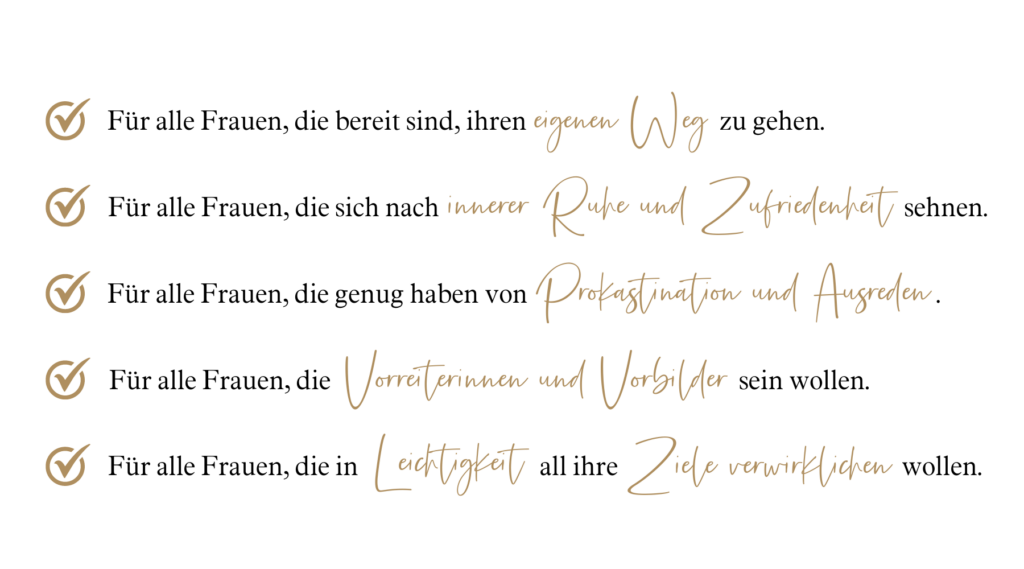 Für alle Frauen, die bereit sind, ihren eigenen Weg zu gehen.
Für alle Frauen, die sich nach innerer Ruhe und Zufriedenheit sehnen.
Für alle Frauen, die genug haben von Prokastination und Ausreden.
Für alle Frauen, die Vorreiterinnen und Vorbilder sein wollen.
Für alle Frauen, die in Leichtigkeit all ihre Ziele verwirklichen wollen.